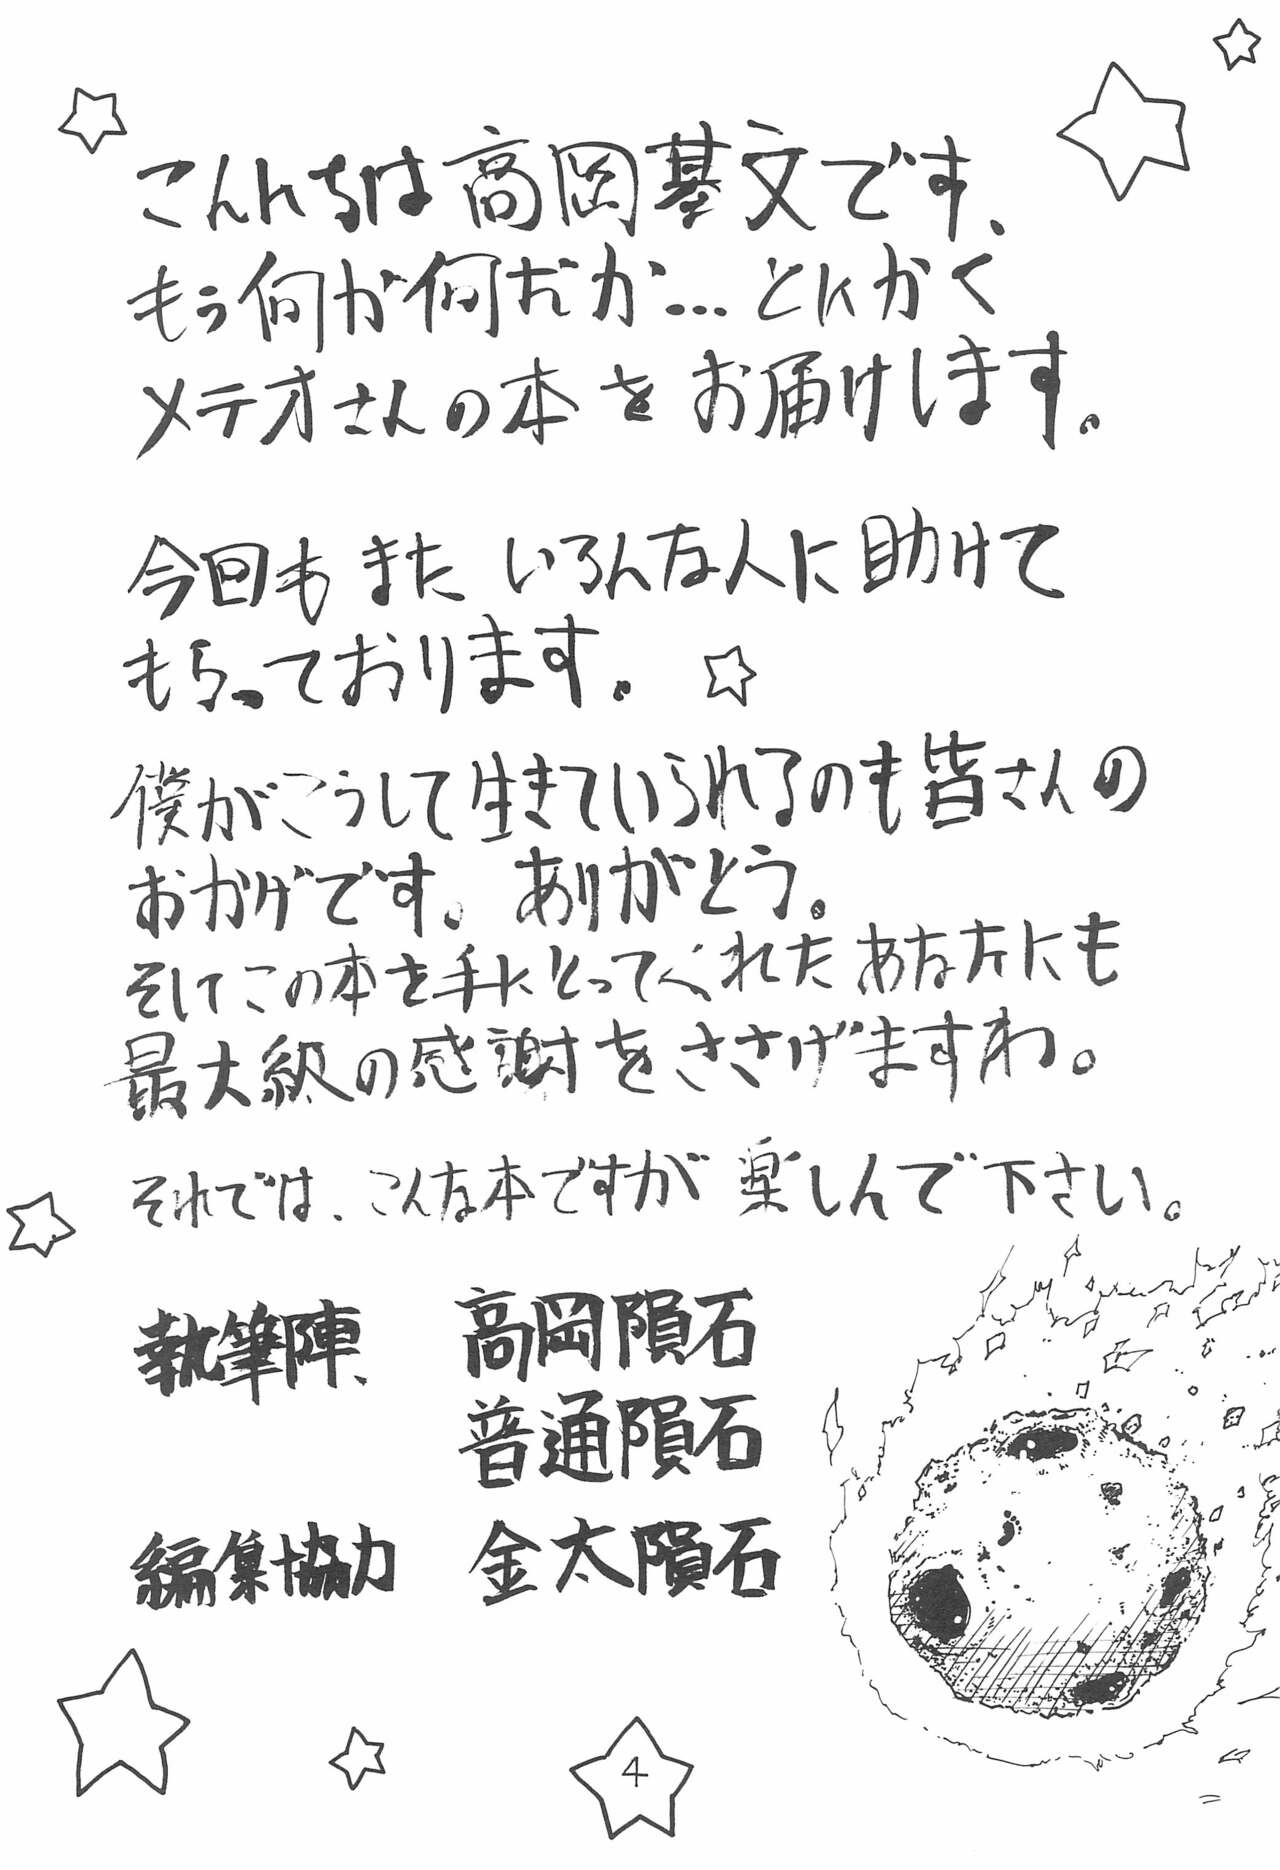 こんんちは高岡基文です、
もう何が何だか…とにかく
メテオさんの本をお届けします。
今回もまた いろんな人に助けて
もらっております。
僕がこうして生きていられるのも皆さんの
おかげです。ありがとう。
そしてこの本を手にとってくれたあなた方にも
最大級の感謝をささげますわ。
それでは、こんな本ですが 楽しんで下さい。
執筆陣、 高岡隕石
普通隕石
編集協力 金太隕石
4